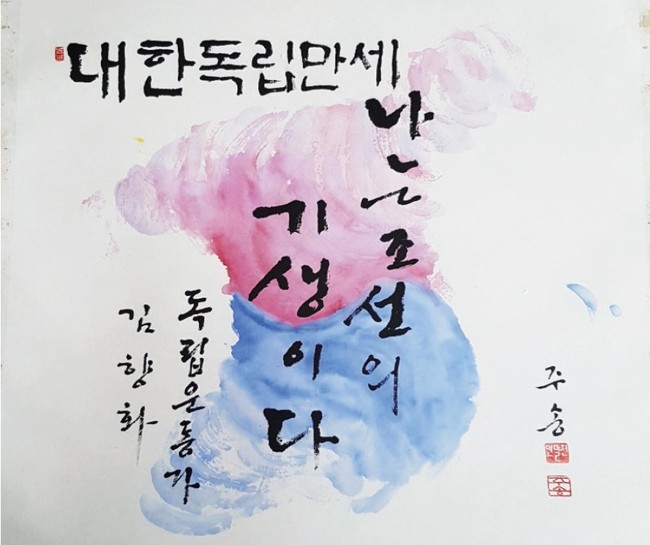 대한독립만세
난 조선의
기생이다
독립운동가
김향화
주송